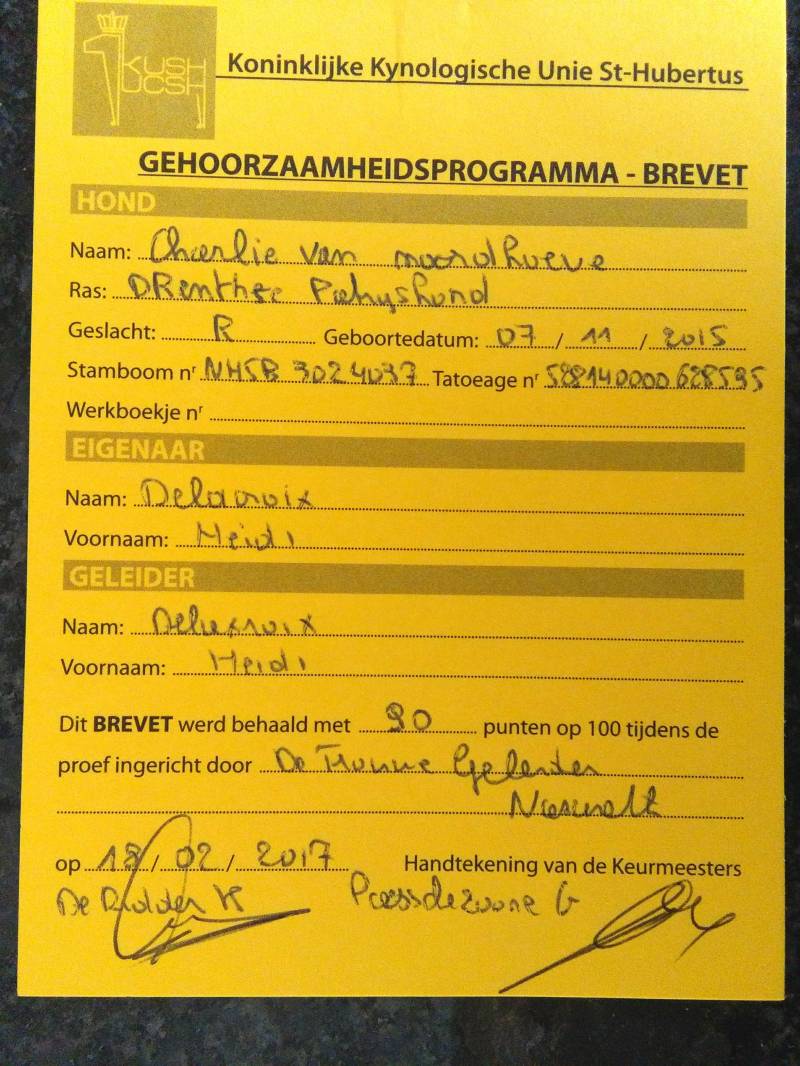 KUSH
UCSH
Koninklijke Kynologische Unie St-Hubertus
GEHOORZAAMHEIDSPROGRAMMA - BREVET
HOND
Naam: Charlie van noordhoeve
Ras: DRenthse Patryshond
Geslacht: R Geboortedatum: 07 / 11 / 2015
Stamboom nr NHSB 3024037 Tatoeage nr 528140000628595
Werkboekje nr
EIGENAAR
Naam: Delacroix
Voornaam: Heidi
GELEIDER
Naam: Delacroix
Voornaam: Heidi
Dit BREVET werd behaald met 90 punten op 100 tijdens de
proef ingericht door De Trouwe Geleider
op 18 / 02 / 2017 Handtekening van de Keurmeesters
De Ridder K